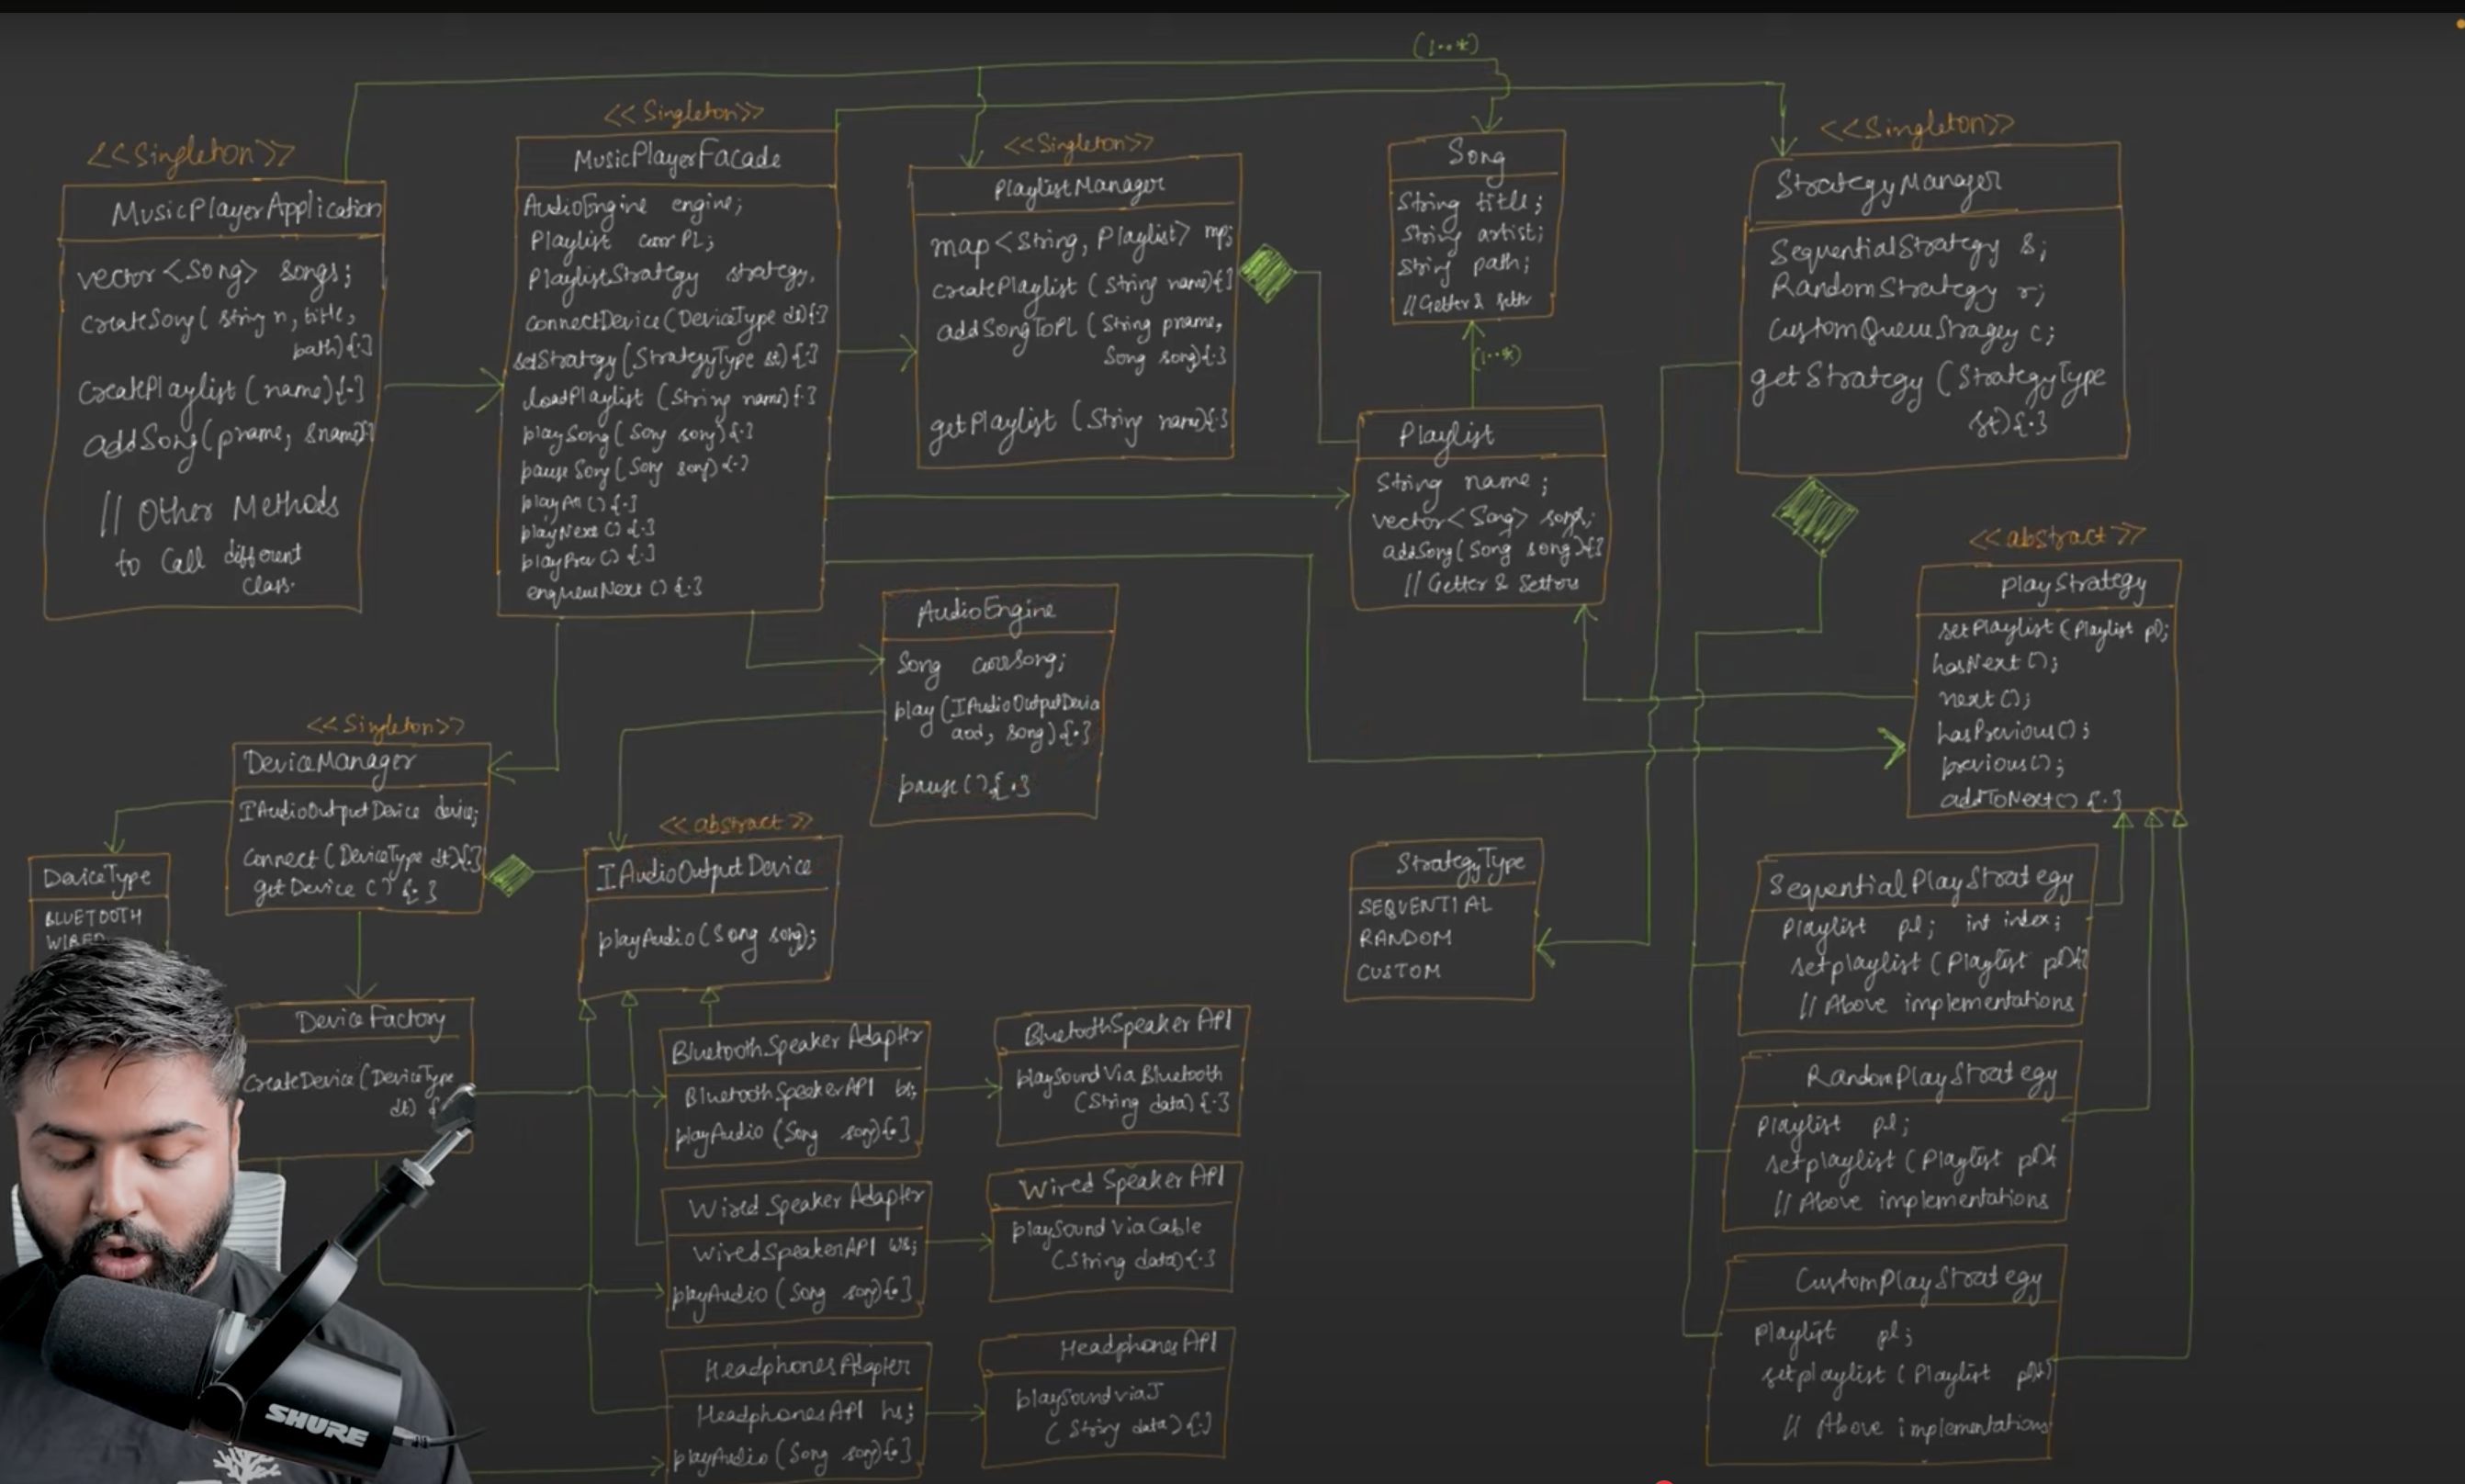 <<Singleton>>
MusicPlayerApplication
vector<Song> songs;
createSong( string n, title,
path){.}
createPlaylist (name){.}
addSong(pname, sname){}
// Other Methods
to Call different
Class.
<<Singleton>>
MusicPlayerFacade
AudioEngine engine;
Playlist curr PL;
PlaylistStrategy strategy,
connectDevice(DeviceType dt){.}
setStrategy(StrategyType st){.}
loadPlaylist (String name){.}
playSong(Song song){.}
pauseSong(Song song){.}
playAll(){.}
playNext(){.}
playPrev(){.}
enqueueNext(){.}
<<Singleton>>
PlaylistManager
map<String, Playlist> mp;
createPlaylist (String name){}
addSongToPL (String pname,
Song song){.}
getPlaylist (String name){.}
(1..*)
Song
String title;
String artist;
String path;
// Getter & setter
(1..*)
Playlist
String name;
vector<Song> songs;
addSong(Song song){}
// Getter & Setters
<<Singleton>>
StrategyManager
SequentialStrategy s;
RandomStrategy r;
CustomQueueStragey c;
getStrategy (StrategyType
st){.}
<<abstract>>
PlayStrategy
setPlaylist (Playlist pl);
hasNext();
next();
hasPrevious();
previous();
addToNext() {.}
AudioEngine
Song currSong;
play(IAudioOutputDevice
aod, song){.}
pause(){.}
<<Singleton>>
DeviceManager
IAudioOutputDevice device;
Connect (DeviceType dt){.}
getDevice () {.}
DeviceType
BLUETOOTH
WIRED
<<abstract>>
IAudioOutputDevice
playAudio(Song song);
StrategyType
SEQUENTIAL
RANDOM
CUSTOM
SequentialPlayStrategy
Playlist pl; int index;
setplaylist (Playlist pl){
// Above implementations
DeviceFactory
CreateDevice (DeviceType
dt) {
BluetoothSpeaker Adapter
BluetoothSpeakerAPI bs;
playAudio (Song song){.}
BluetoothSpeaker API
playSound Via Bluetooth
(String data){.}
RandomPlayStrategy
Playlist pl;
setplaylist (Playlist pl){
// Above implementations
Wired Speaker Adapter
WiredSpeakerAPI ws;
playAudio (Song song){.}
Wired Speaker API
playSound Via Cable
(String data){.}
CustomPlayStrategy
Playlist pl;
setplaylist (Playlist pl){}
// Above implementations
HeadphonesAdapter
HeadphonesAPI hs;
playAudio (Song song){.}
HeadphonesAPI
playSoundviaJ
(String data){.}
SHURE